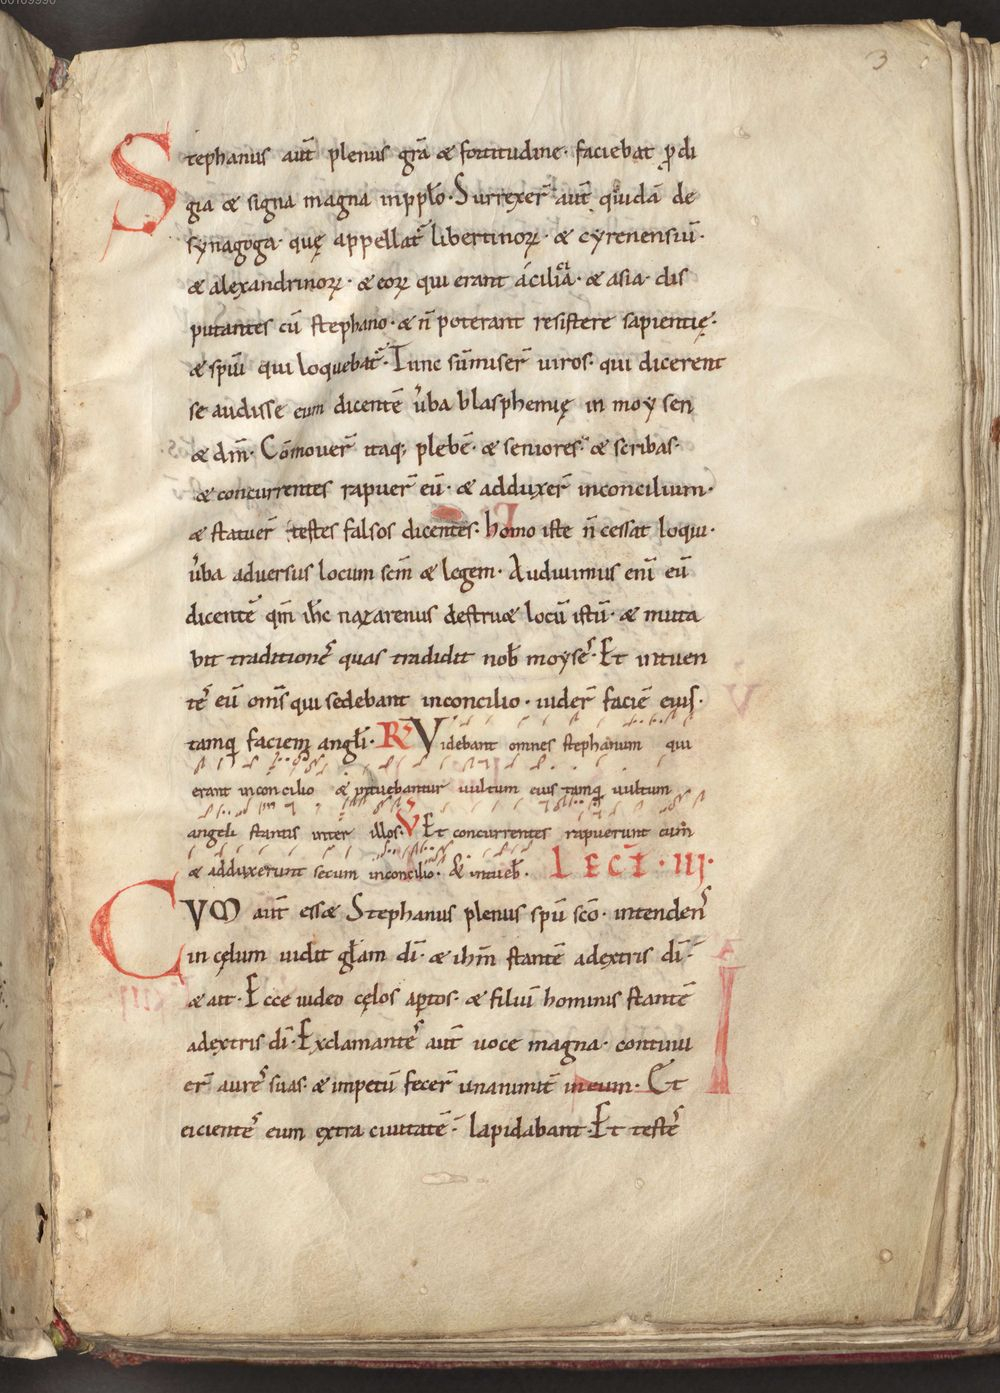 3
Stephanus aut̄ plenus grā & fortitudine· faciebat ꝓdi
gia & signa magna inpplo· Surrexer̄ aut̄ quidā de
synagoga· quę appellat᷑ libertinoꝝ· & cyrenensiū·
& alexandrinoꝝ· & eoꝝ qui erant a cilicia· & asia· dis
putantes cū stephano· & n̄ poterant resistere sapientię·
& spiū qui loquebat᷑· Tunc sūmiser̄ uiros· qui dicerent
se audisse eum dicentē ūba blasphemię in moysen
& dm̄· Cōmouer̄ itaq; plebē· & seniores· & scribas·
& concurrentes rapuer̄ eū· & adduxer̄ inconcilium·
& statuer̄ testes falsos dicentes· homo iste n̄ cessat loqui·
ūba aduersus locum scm̄ & legem· Audiuimus enī eū
dicentē qm̄ ihc nazarenus destru& locū istū· & muta
bit traditionēs quas tradidit nob̄ moyses· Et intuen
tēs eū om̄s qui sedebant inconcilio· uider̄ faciē eius·
tamq̄ faciem angli· R̄ Videbant omnes stephanum qui
erant inconcilio & intuebantur uultum eius tamq̄ uultum
angeli stantis inter illos· V̄ Et concurrentes rapuerunt eum
& adduxerunt secum inconcilio· & intueb̄· LECT̄· III·
CVM aut̄ ess& Stephanus plenus spū scō· intendens
in cęlum uidit glam dī· & ihm̄ stantē adextris dī·
& ait· Ecce uideo cęlos aptos· & filiū hominis stantē
adextris dī· Exclamantes aut̄ uoce magna· continu
er̄ aures suas· & impetū fecer̄ unanimit̄ ineum· Et
eicientes eum extra ciuitatē· lapidabant· Et testes